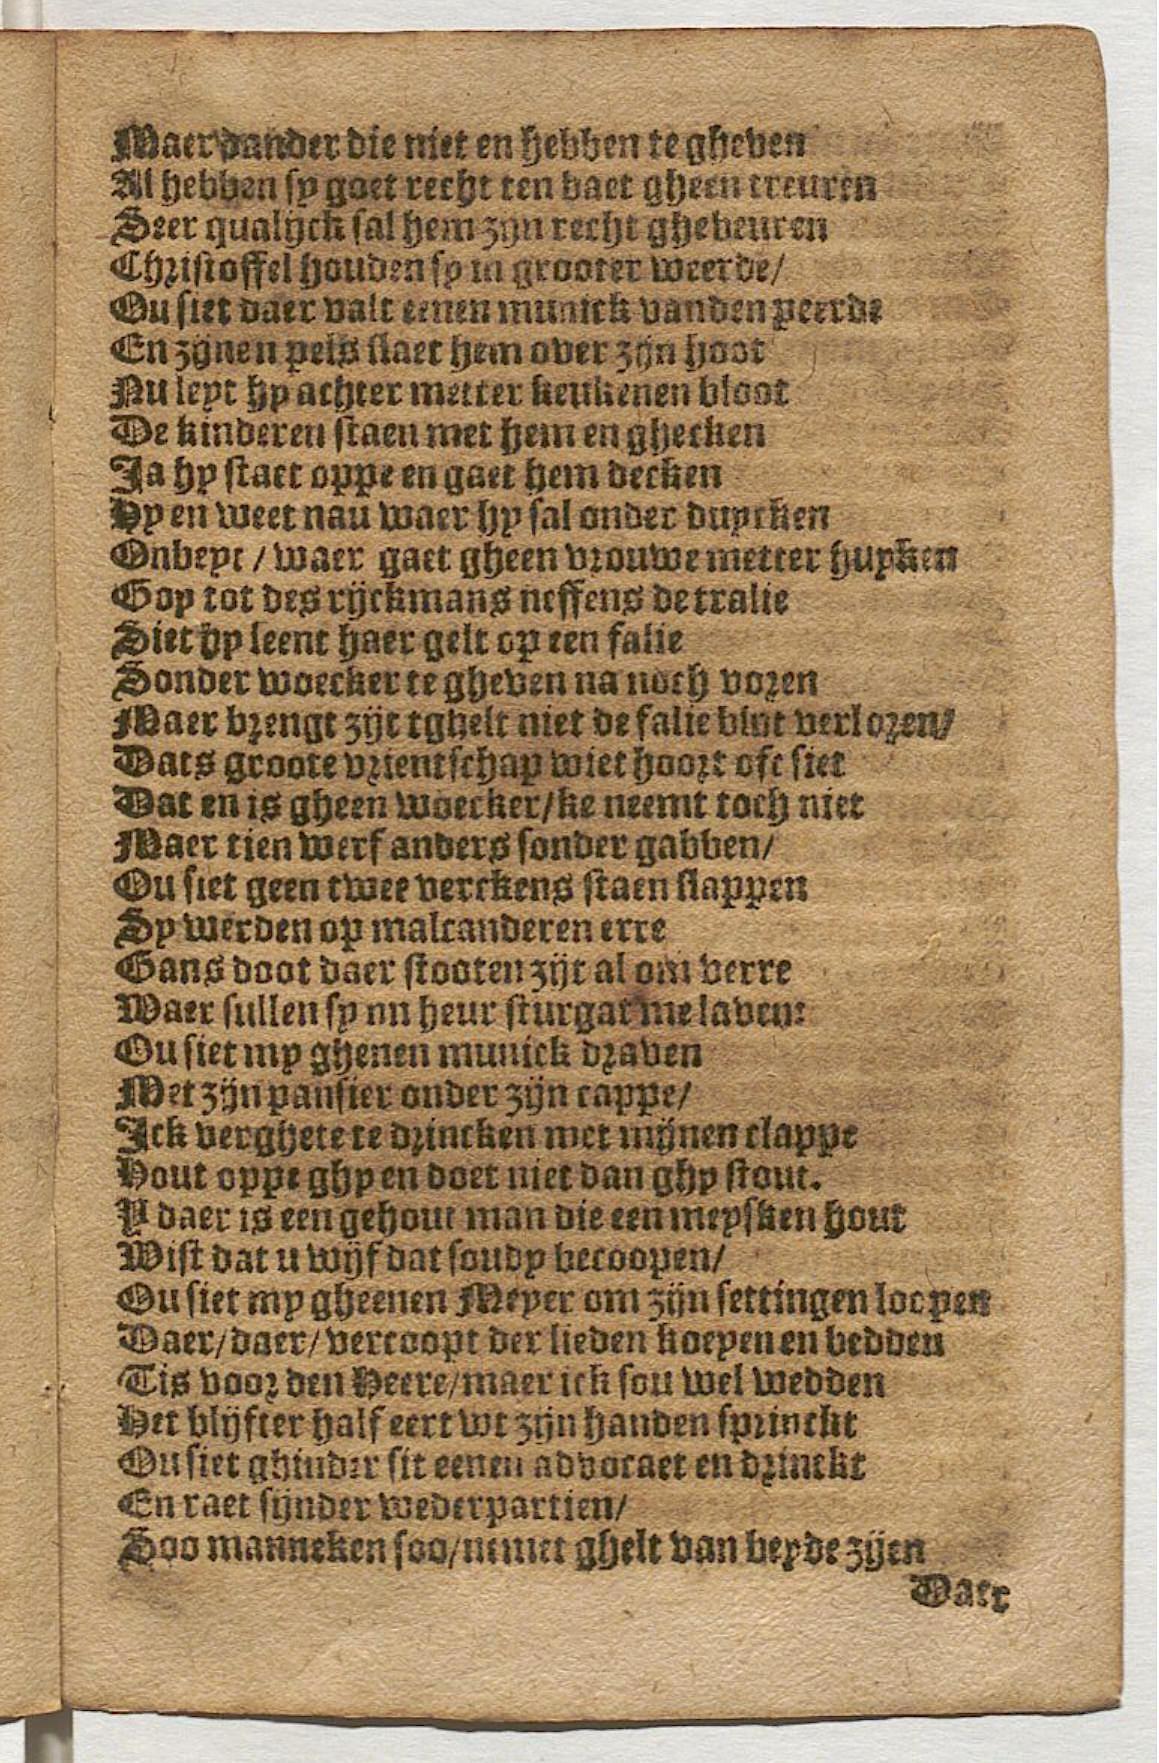 Maer dander die niet en hebben te gheven
Al hebben sy goet recht ten baet gheen treuren
Seer qualijck sal hem zijn recht ghebeuren
Christoffel houden sy in grooter weerde/
Ou siet daer valt eenen munick vanden peerde
En zijnen pels slaet hem over zijn hoot
Nu leyt hy achter metter keukenen bloot
De kinderen staen met hem en ghecken
Ja hy staet oppe en gaet hem decken
Hy en weet nau waer hy sal onder duycken
Onbeyt / waer gaet gheen vrouwe metter huyken
Gop tot des rijckmans neffens de tralie
Siet hy leent haer gelt op een falie
Sonder woecker te gheven na noch voren
Maer brengt zijt tghelt niet de falie blijt verloren/
Dats groote vrientschap wiet hoort oft siet
Dat en is gheen woecker/ke neemt toch niet
Maer tien werf anders sonder gabben/
Ou siet geen twee verckens staen slappen
Sy werden op malcanderen erre
Gans doot daer stooten zijt al om verre
Waer sullen sy nu heur sturgat me laven?
Ou siet my ghenen munick draven
Met zijn pansier onder zijn cappe/
Ick verghete te drincken met mijnen clappe
Hout oppe ghy en doet niet dan ghy stout.
Y daer is een gehout man die een meysken hout
Wist dat u wijf dat soudy becoopen/
Ou siet my gheenen Meyer om zijn settingen loopen
Daer/daer/vercoopt der lieden koeyen en bedden
Tis voor den Heere/maer ick sou wel wedden
Het blijfter half eert wt zijn handen sprinckt
Ou siet ghinder sit eenen advocaet en drinckt
En raet sijnder wederpartien/
Soo manneken soo/nemet ghelt van beyde zijen
Daer